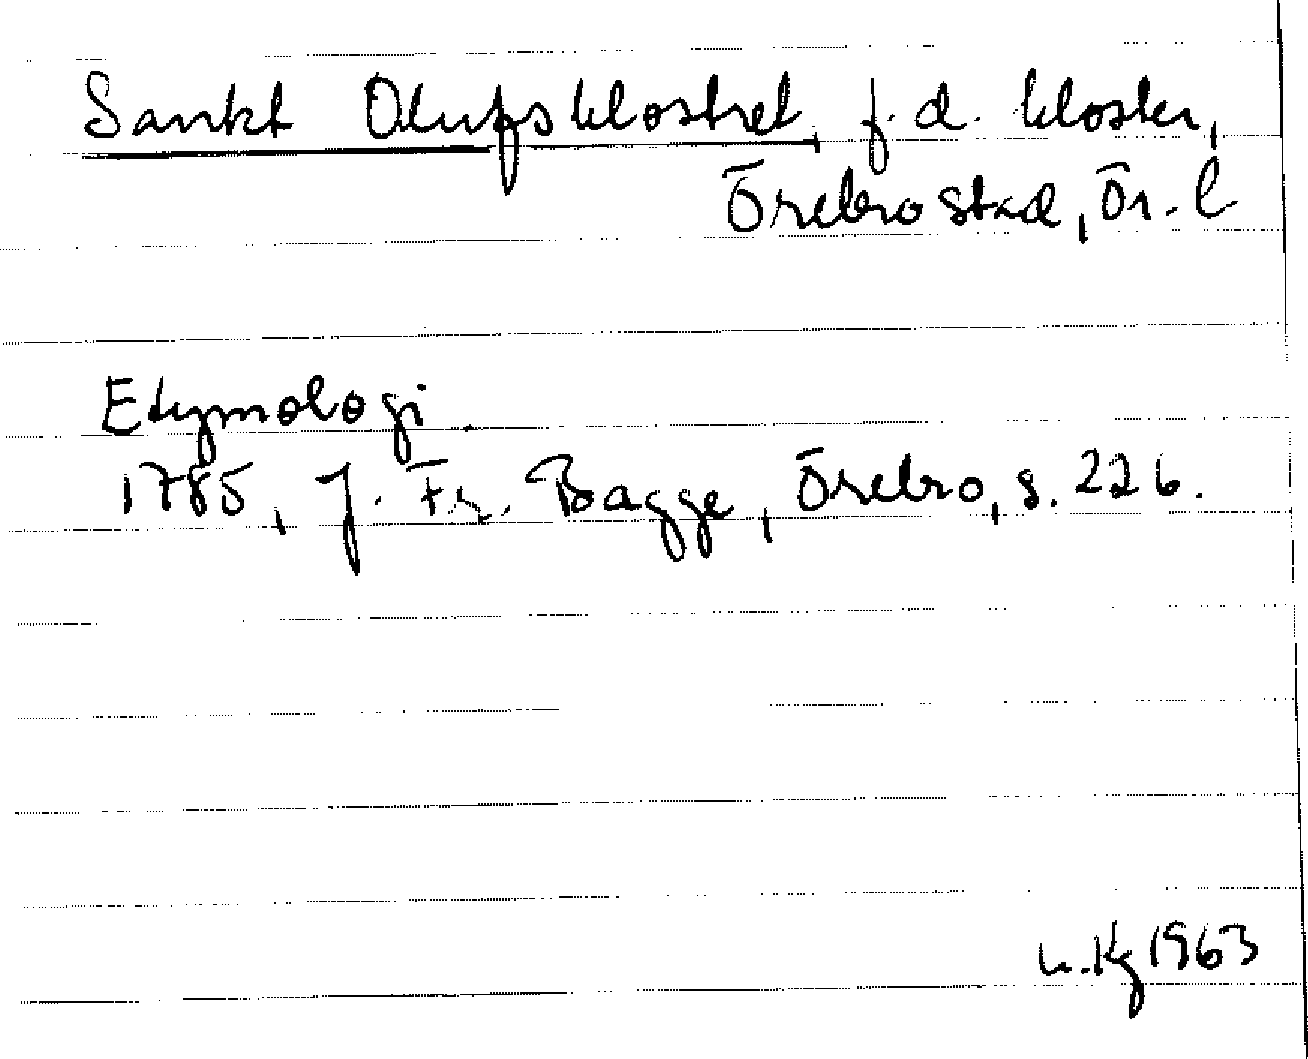 Sankt Olufsklostret, f.d. kloster,
Örebro stad, Ör. l
Etymologi.
1785, J. Fr. Bagge, Örebro, s. 226.
u.Kg 1963